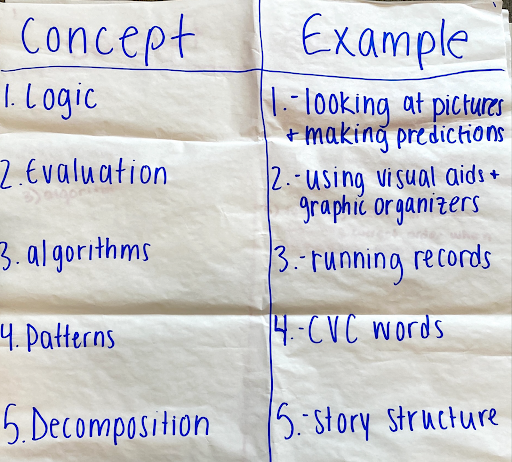 Concept Example
1. Logic
1.-looking at pictures
+ making predictions
2. Evaluation
2.-using visual aids +
graphic organizers
3. algorithms
3.-running records
4. Patterns
4.-CVC words
5. Decomposition
5.-story structure